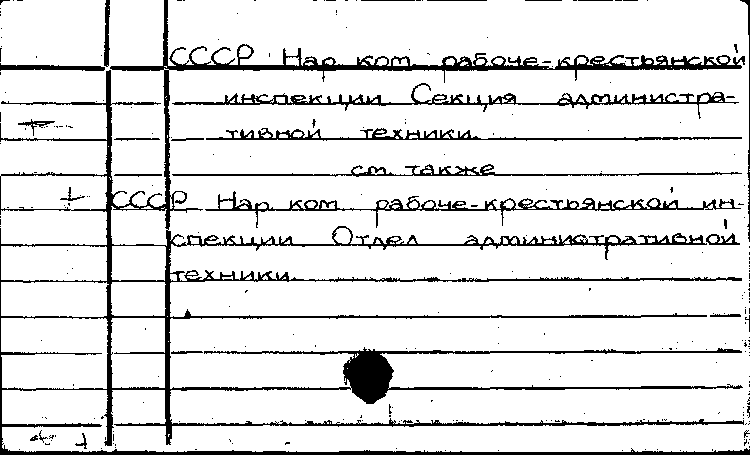 СССР Нар. ком. рабоче-крестьянской
инспекции. Секция администра-
тивной техники.
см. также
СССР Нар. ком. рабоче-крестьянской ин-
спекции. Отдел административной
техники.